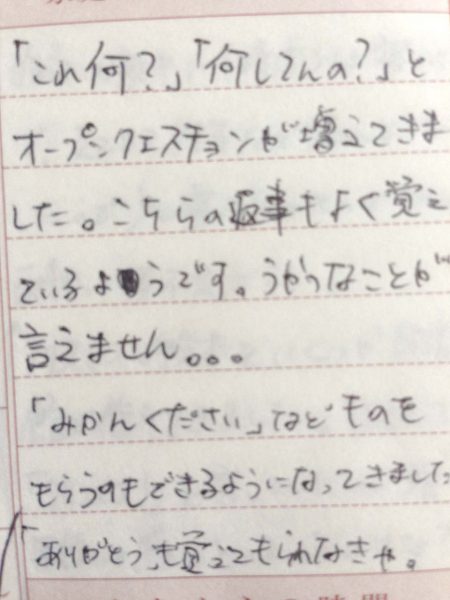 「これ何？」「何してんの？」と
オープンクエスチョンが増えてきま
した。こちらの返事もよく覚え
ているようです。うかつなことが
言えません。。。
「みかんください」などものを
もらうのもできるようになってきました
「ありがとう」も覚えてもらわなきゃ。